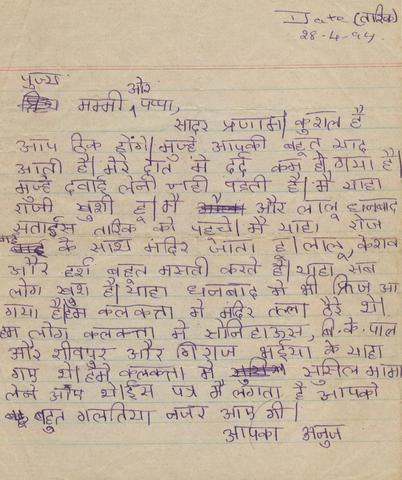 Date (तारिक)
28-4-94.
पुज्य
मम्मी और पप्पा,
सादर प्रणाम। कुशल है
आप ठिक होंगे। मुज्हे आपकी बहुत याद
आती है। मेरे दात मे दर्द कम हो गया है।
मुज्हे दवाई लेनी नही पडती है। मै याहा
राजी खुशी हू। मै और लालू धानबाद
सताईस तारिक को पहुचे। मै याहा रोज
के साथ मंदिर जाता हू। लालू, केशव
और हर्श बहुत मसती करते है। याहा सब
लोग खुश है। याहा धनबाद मे भी फ्रिज आ
गया है। हम कलकत्ता मे मदिर तला ठैरे थे।
हम लोग कलकत्ता मे सोनि हाऊस, बि. के. पाल
और शीवपुर और गिराज भईया के याहा
गए थे। हमे कलकत्ता मे सुसिल मामा
लेने आए थे। ईस पत्र मै लगता है आपको
बहुत गलतिया नजर आए गी।
आपका अनुज